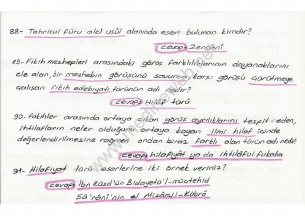 88- Tahricul füru alel usûl alanında eseri bulunan kimdir?
cevap: Zencani
89- Fıkıh mezhepleri arasındaki görüş farklılıklarının dayanaklarını
ele alan, bir mezhebin görüşünü savunup karşı görüşü çürütmeye
çalışan fıkıh edebiyatı türünün adı nedir?
cevap: Hilaf türü
90- Fakihler arasında ortaya çıkan görüş ayrılıklarını tespit eden,
ihtilafların neler olduğunu ortaya koyan ilmi hilaf içinde
değerlendirilmesine rağmen ondan biraz farklı olan türün adı nedir?
cevap: hilafiyat ya da ihtilaful fukaha
91- Hilafiyat türü eserlerine iki örnek veriniz?
cevap: İbn Rüşd'ün Bidayetü'l-müctehid
Şa'rani'nin el Mizanul-Kübra